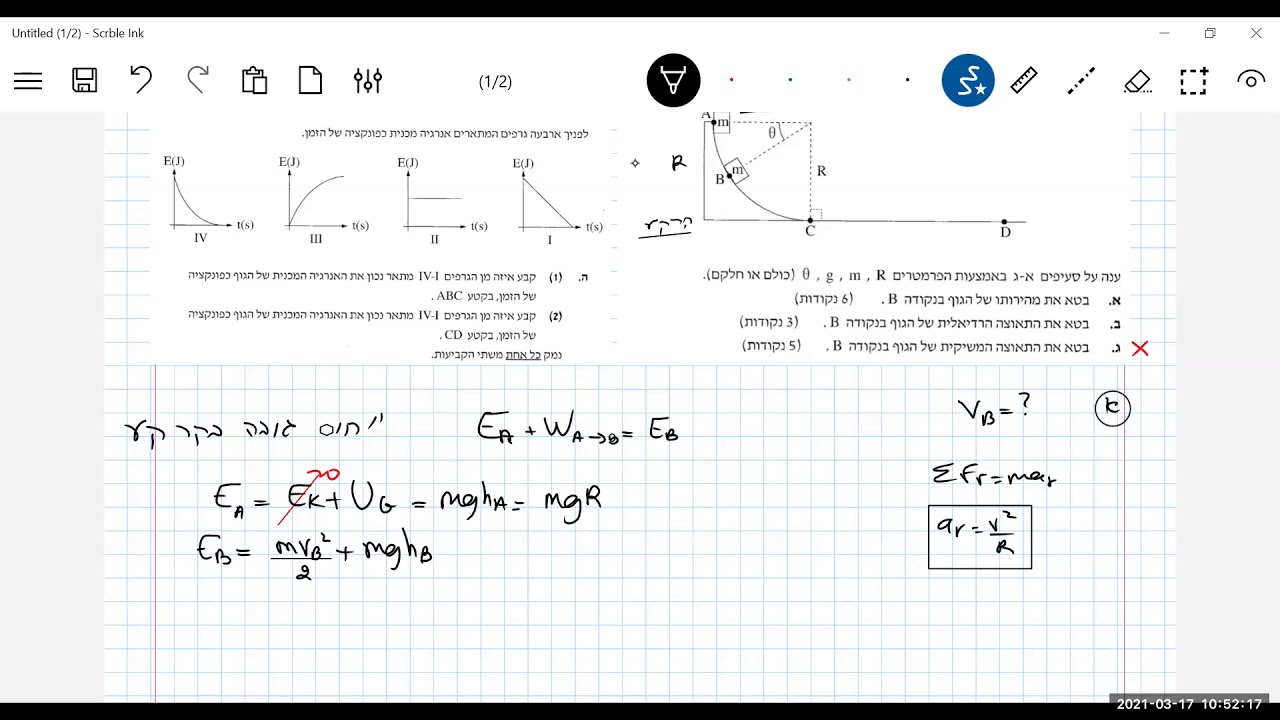 Untitled (1/2) - Scrble Ink
(1/2)
לפניך ארבעה גרפים המתארים אנרגיה מכנית כפונקציה של הזמן.
E(J) E(J) E(J) E(J)
t(s) t(s) t(s) t(s)
IV III II I
A m θ
R
B m R
הקרקע
C D
ה. (1) קבע איזה מן הגרפים IV-I מתאר נכון את האנרגיה המכנית של הגוף כפונקציה
של הזמן, בקטע ABC .
(2) קבע איזה מן הגרפים IV-I מתאר נכון את האנרגיה המכנית של הגוף כפונקציה
של הזמן, בקטע CD .
נמק כל אחת משתי הקביעות.
ענה על סעיפים א-ג באמצעות הפרמטרים θ , g , m , R (כולם או חלקם).
א. בטא את מהירותו של הגוף בנקודה B . (6 נקודות)
ב. בטא את התאוצה הרדיאלית של הגוף בנקודה B . (3 נקודות)
ג. בטא את התאוצה המשיקית של הגוף בנקודה B . (5 נקודות)
א
V_B = ?
ΣFr = mar
ar = v²/R
ייחוס גובה בקרקע
E_A + W_A→B = E_B
E_A = Ek + U_G = mgh_A = mgR
E_B = mv_B²/2 + mgh_B
2021-03-17 10:52:17